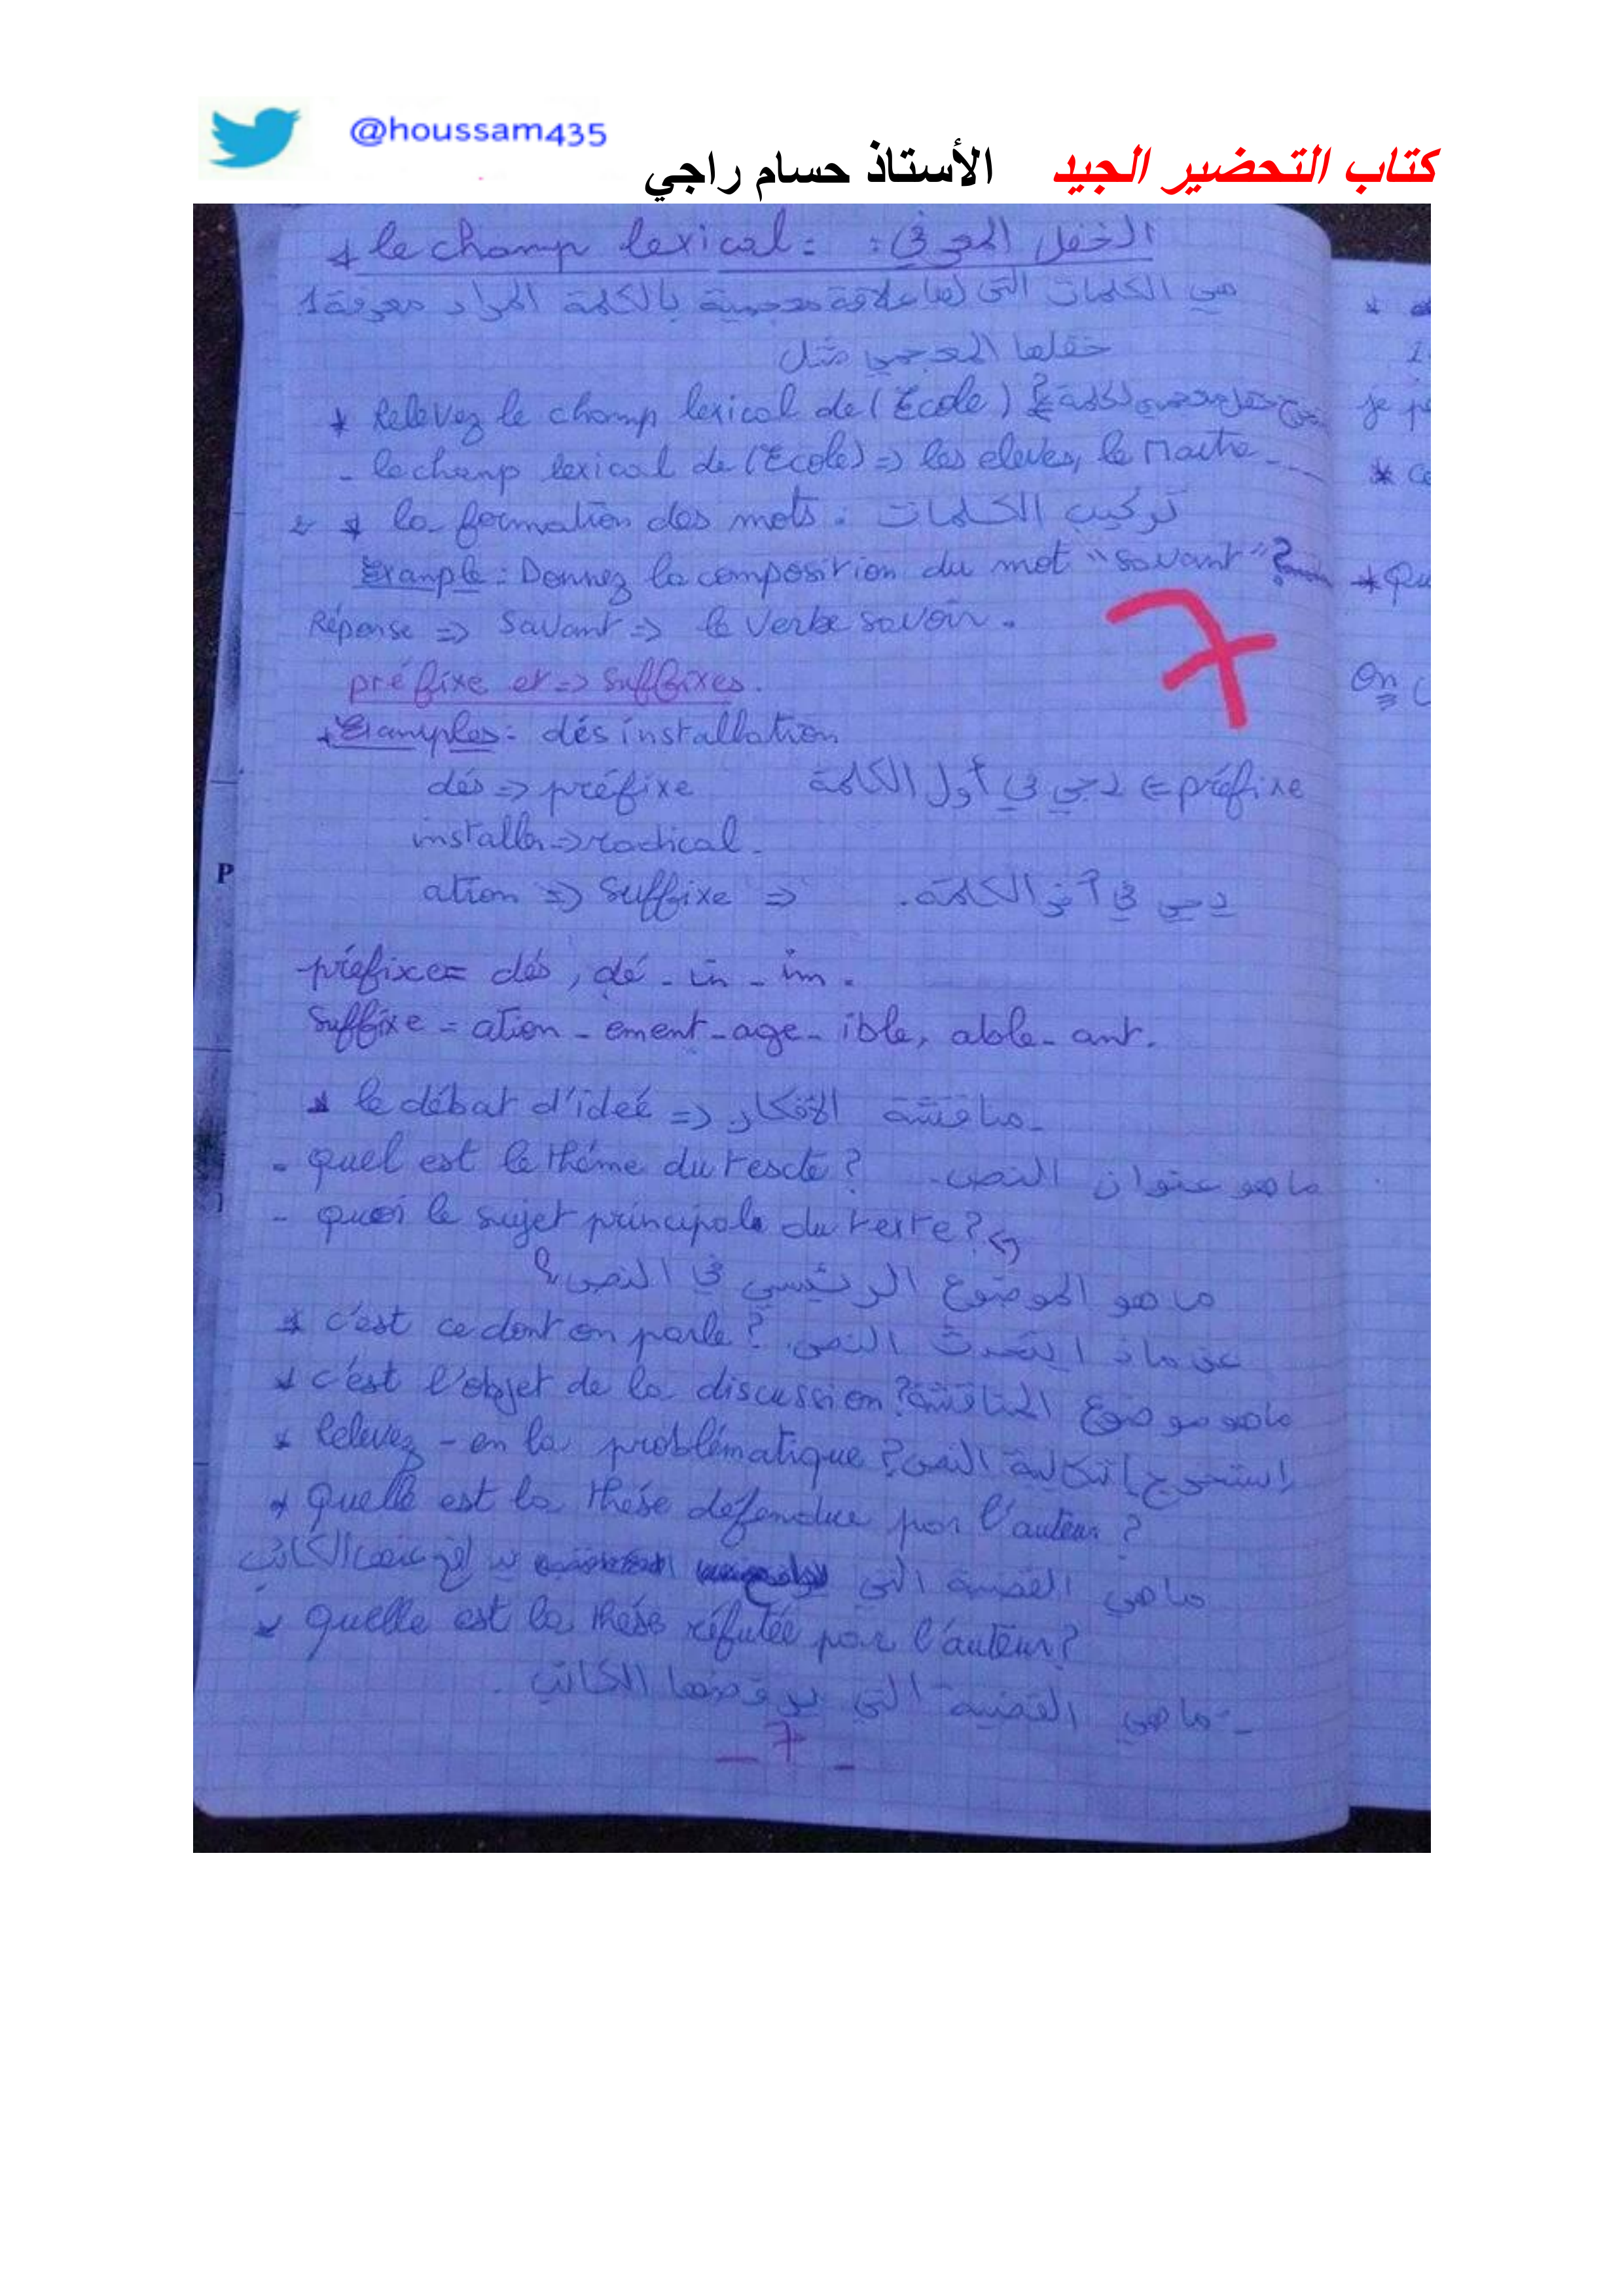 @houssam435
كتاب التحضير الجيد الأستاذ حسام راجي
* le champ lexical : الحقل المعرفي :
هي الكلمات التي لها علاقة معجمية بالكلمة المراد معرفة
حقلها المعجمي مثل
* Relevez le champ lexical de (Ecole)
- le champ lexical de (Ecole) => les eleves, le Maitre ...
* la formation des mots : تركيب الكلمات
Example : Donnez la composition du mot "savant" ?
Réponse => Savant => le verbe savoir .
préfixe et => suffixes.
Examples : désinstallation
dés => préfixe
préfixe => يجي في أول الكلمة
installer => radical -
ation => suffixe => يجي في آخر الكلمة.
préfixe = dés , dé - in - im .
Suffixe = ation - ement - age - ible, able - ant.
* le débat d'ideé => مناقشة الأفكار.
- quel est le théme du texte ? ما هو عنوان النص.
- quoi le sujet principale du texte ?
ما هو الموضوع الرئيسي في النص؟
* c'est ce dont on parle ? عن ماذا يتحدث النص.
* c'est l'objet de la discussion ? ما هو موضوع المناقشة
* Relevez-en la problématique ? إستخرج إشكالية النص
* Quelle est la thése défendue par l'auteur ?
ما هي القضية التي يدافع عنها الكاتب
* Quelle est la thése réfutée par l'auteur ?
- ما هي القضية التي يرفضها الكاتب.
- 7 -
7
P
je
* Qu
On